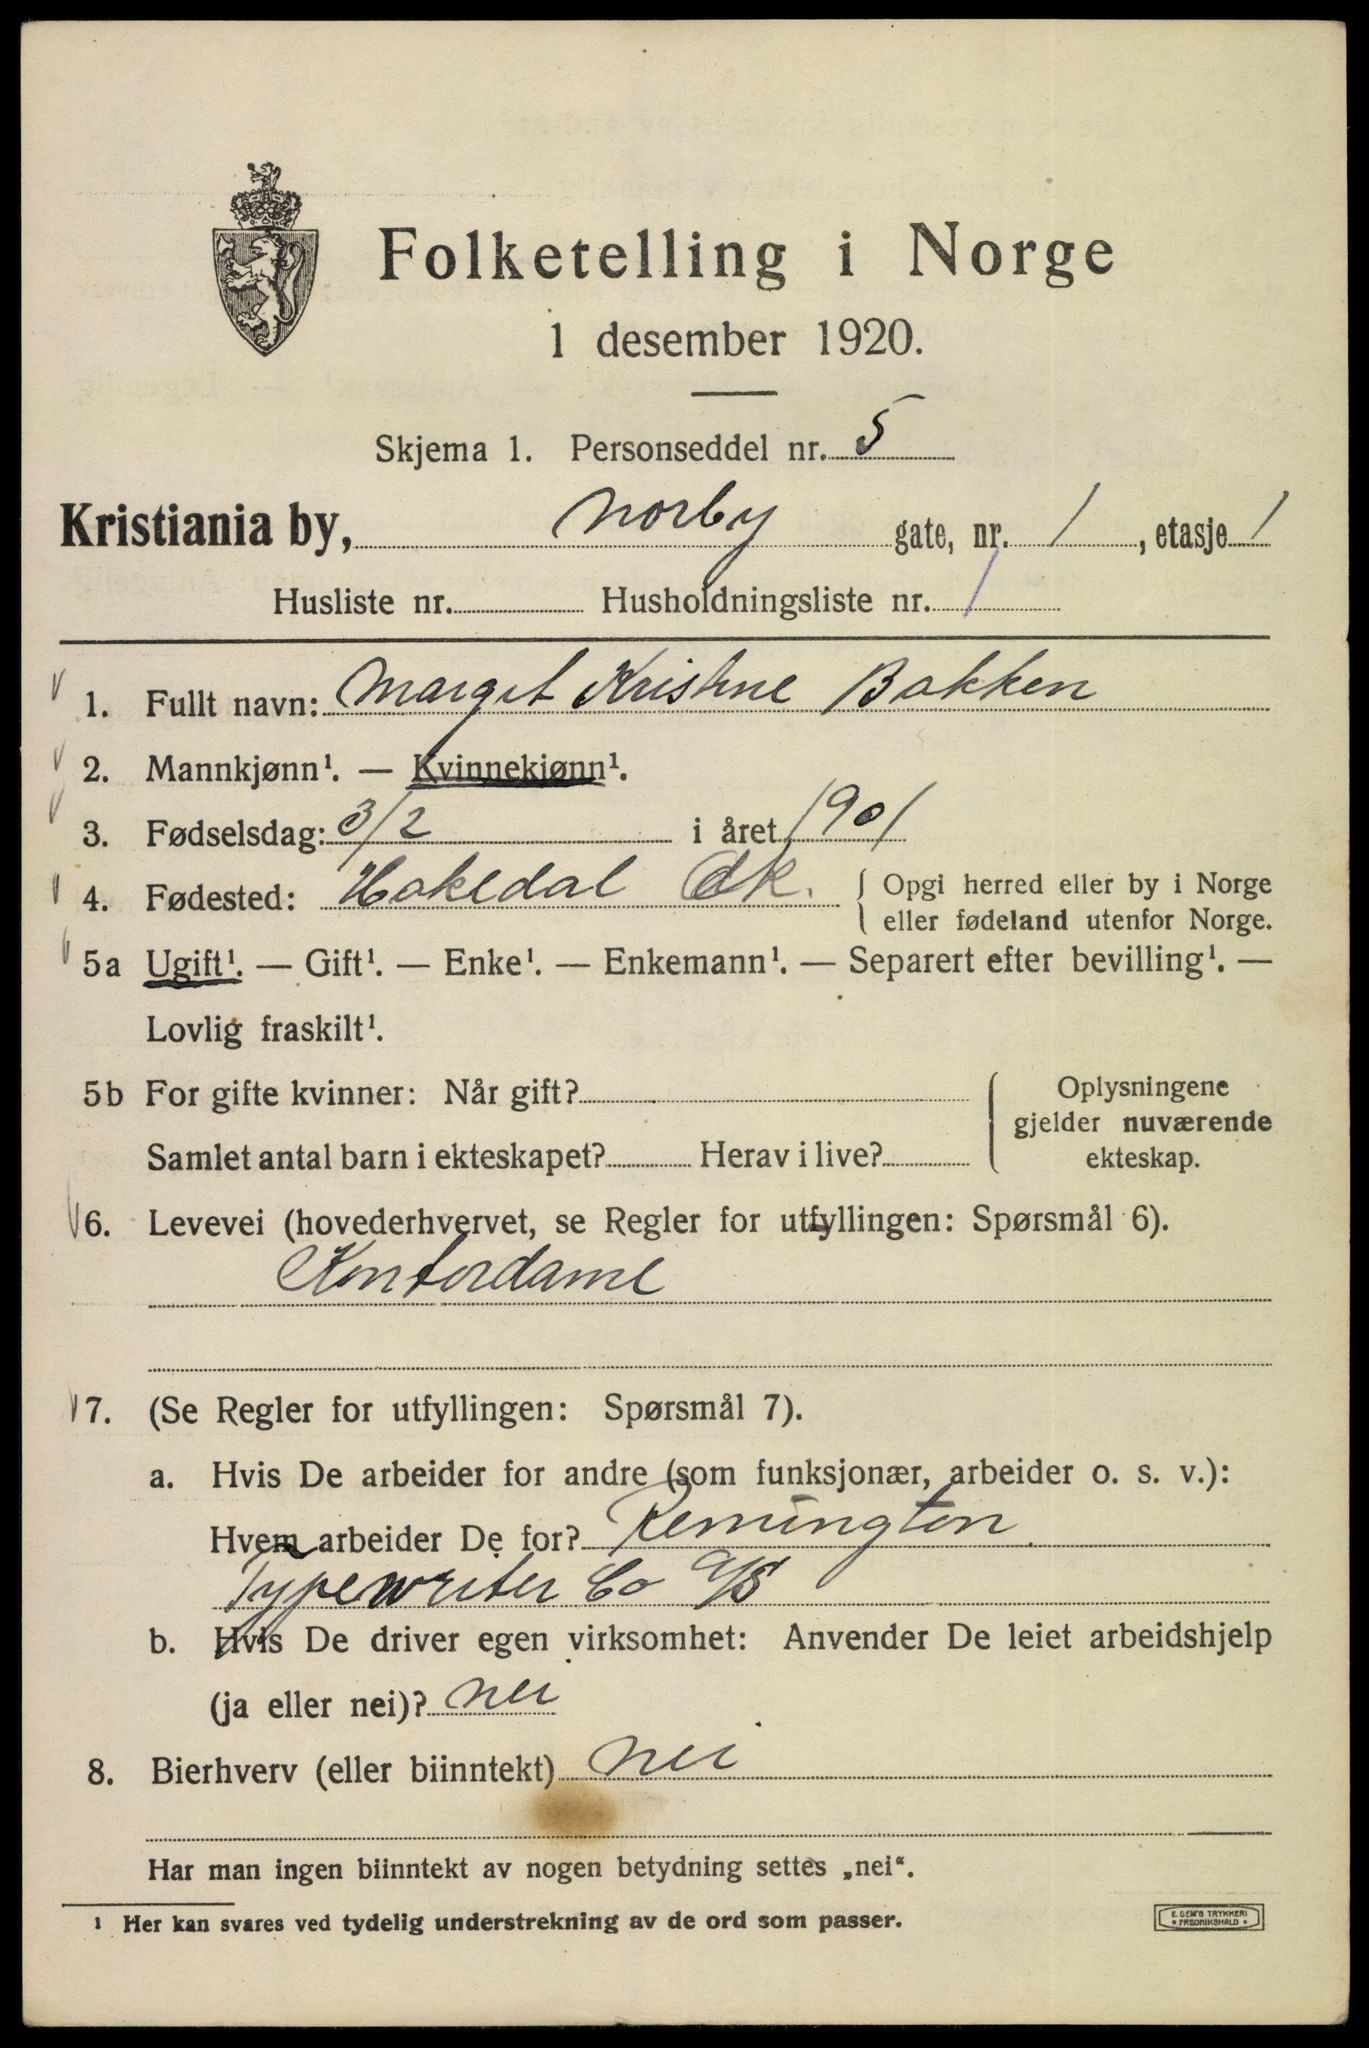 Folketelling i Norge
1 desember 1920.
Skjema 1. Personseddel nr. 5
Kristiania by, Norby gate, nr. 1, etasje 1
Husliste nr. Husholdningsliste nr. 1
1. Fullt navn: Margit Kristine Bakken
2. Mannkjønn¹. — Kvinnekjønn¹.
3. Fødselsdag: 3/2 i året 1901
4. Fødested: Hakedal Ak. { Opgi herred eller by i Norge
eller fødeland utenfor Norge.
5a Ugift¹. — Gift¹. — Enke¹. — Enkemann¹. — Separert efter bevilling¹. —
Lovlig fraskilt¹.
5b For gifte kvinner: Når gift?
Samlet antal barn i ekteskapet? Herav i live?
Oplysningene
gjelder nuværende
ekteskap.
6. Levevei (hovederhvervet, se Regler for utfyllingen: Spørsmål 6).
Kontordame
7. (Se Regler for utfyllingen: Spørsmål 7).
a. Hvis De arbeider for andre (som funksjonær, arbeider o. s. v.):
Hvem arbeider De for? Remington
Typewriter Co A/S
b. Hvis De driver egen virksomhet: Anvender De leiet arbeidshjelp
(ja eller nei)? nei
8. Bierhverv (eller biinntekt) nei
Har man ingen biinntekt av nogen betydning settes „nei“.
¹ Her kan svares ved tydelig understrekning av de ord som passer.
E. SEM'S TRYKKERI
FREDRIKSHALD